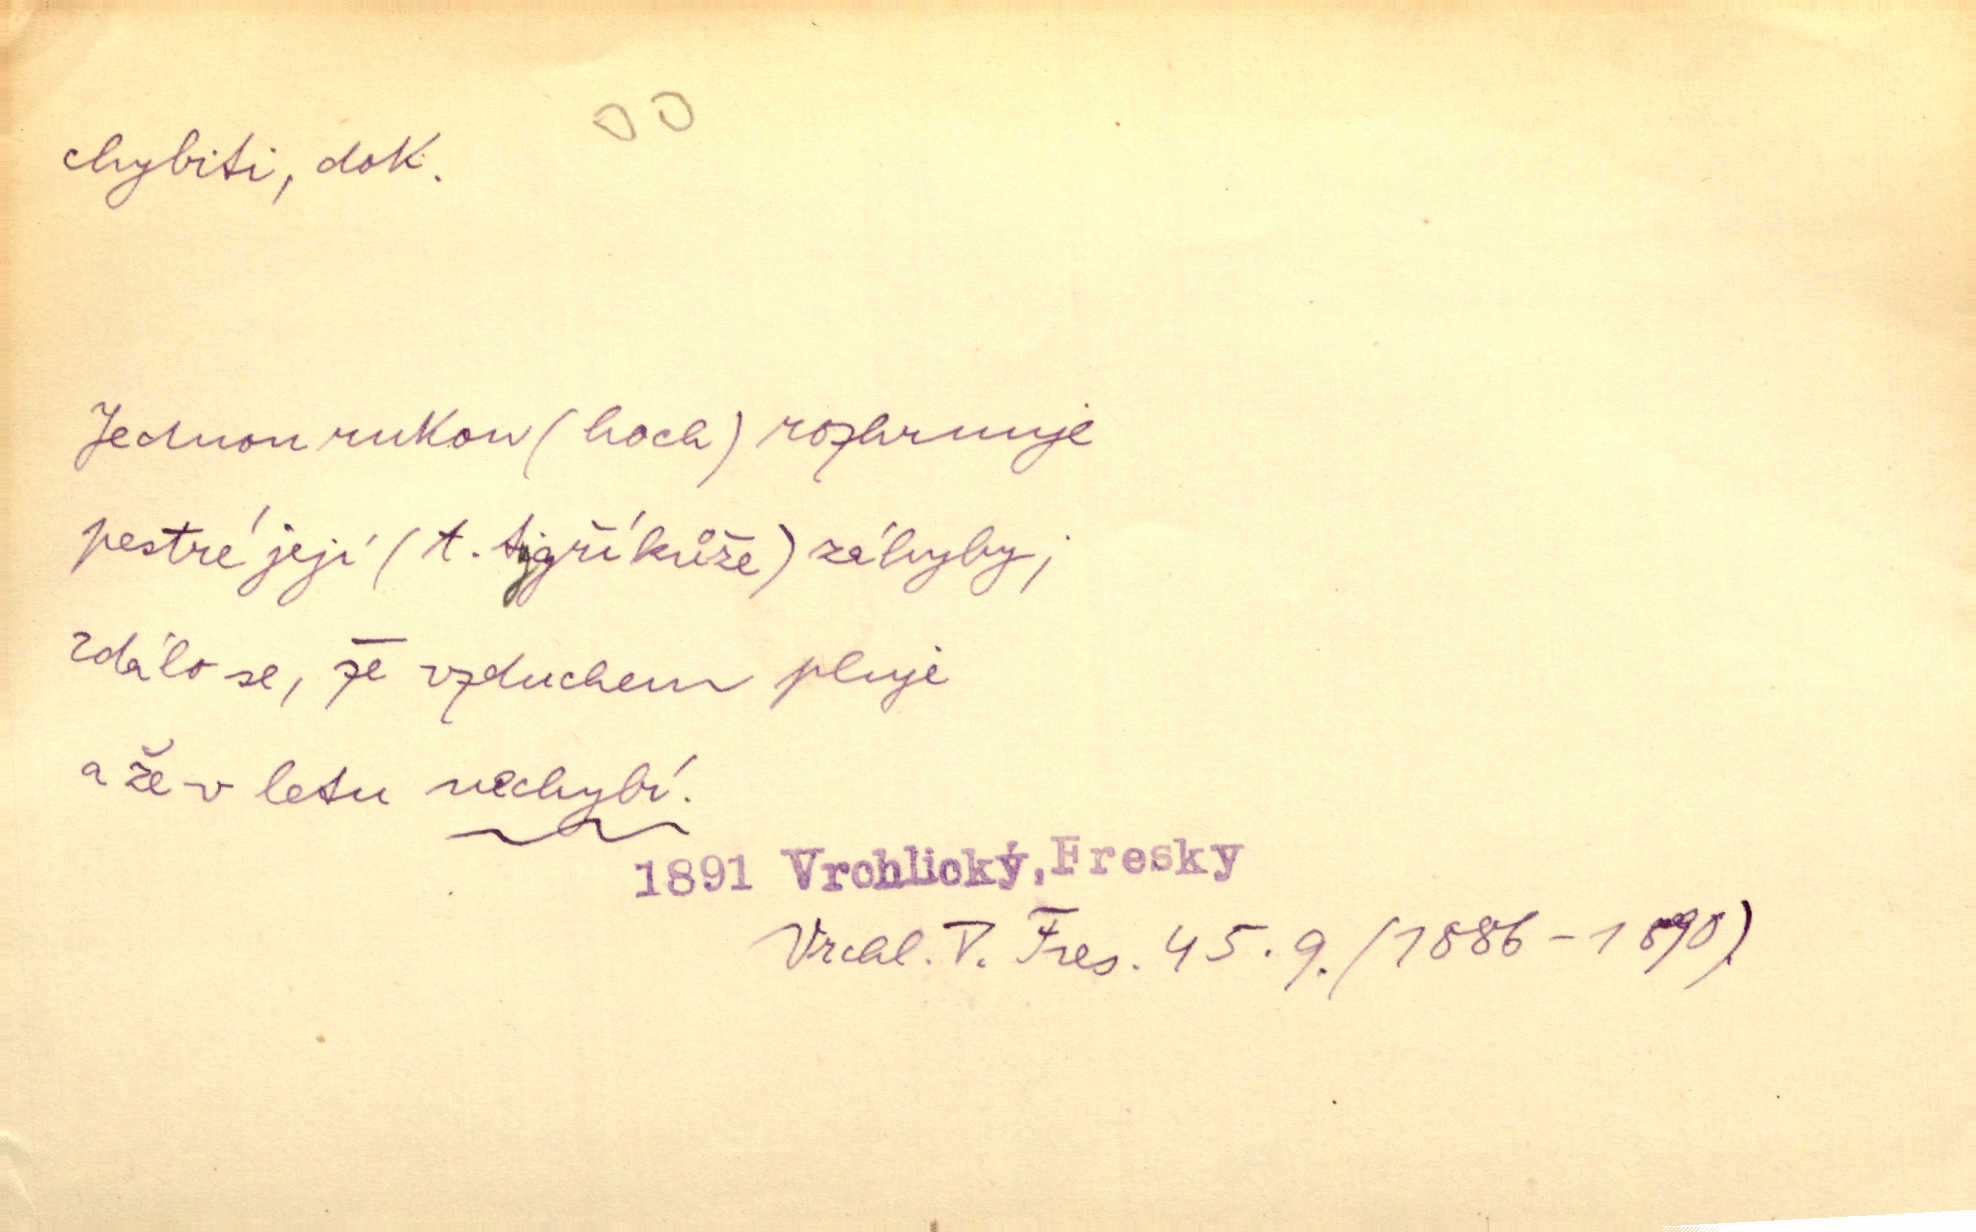 chybiti, dok.
Jednou rukou (hoch) rozhrnuje
pestré její (t. tygří kůže) záhyby;
zdálo se, že vzduchem pluje
a že v letu nechybí.
1891 Vrchlický, Fresky
Vrchl. P. Fres. 45. 9. (1886 - 1890)